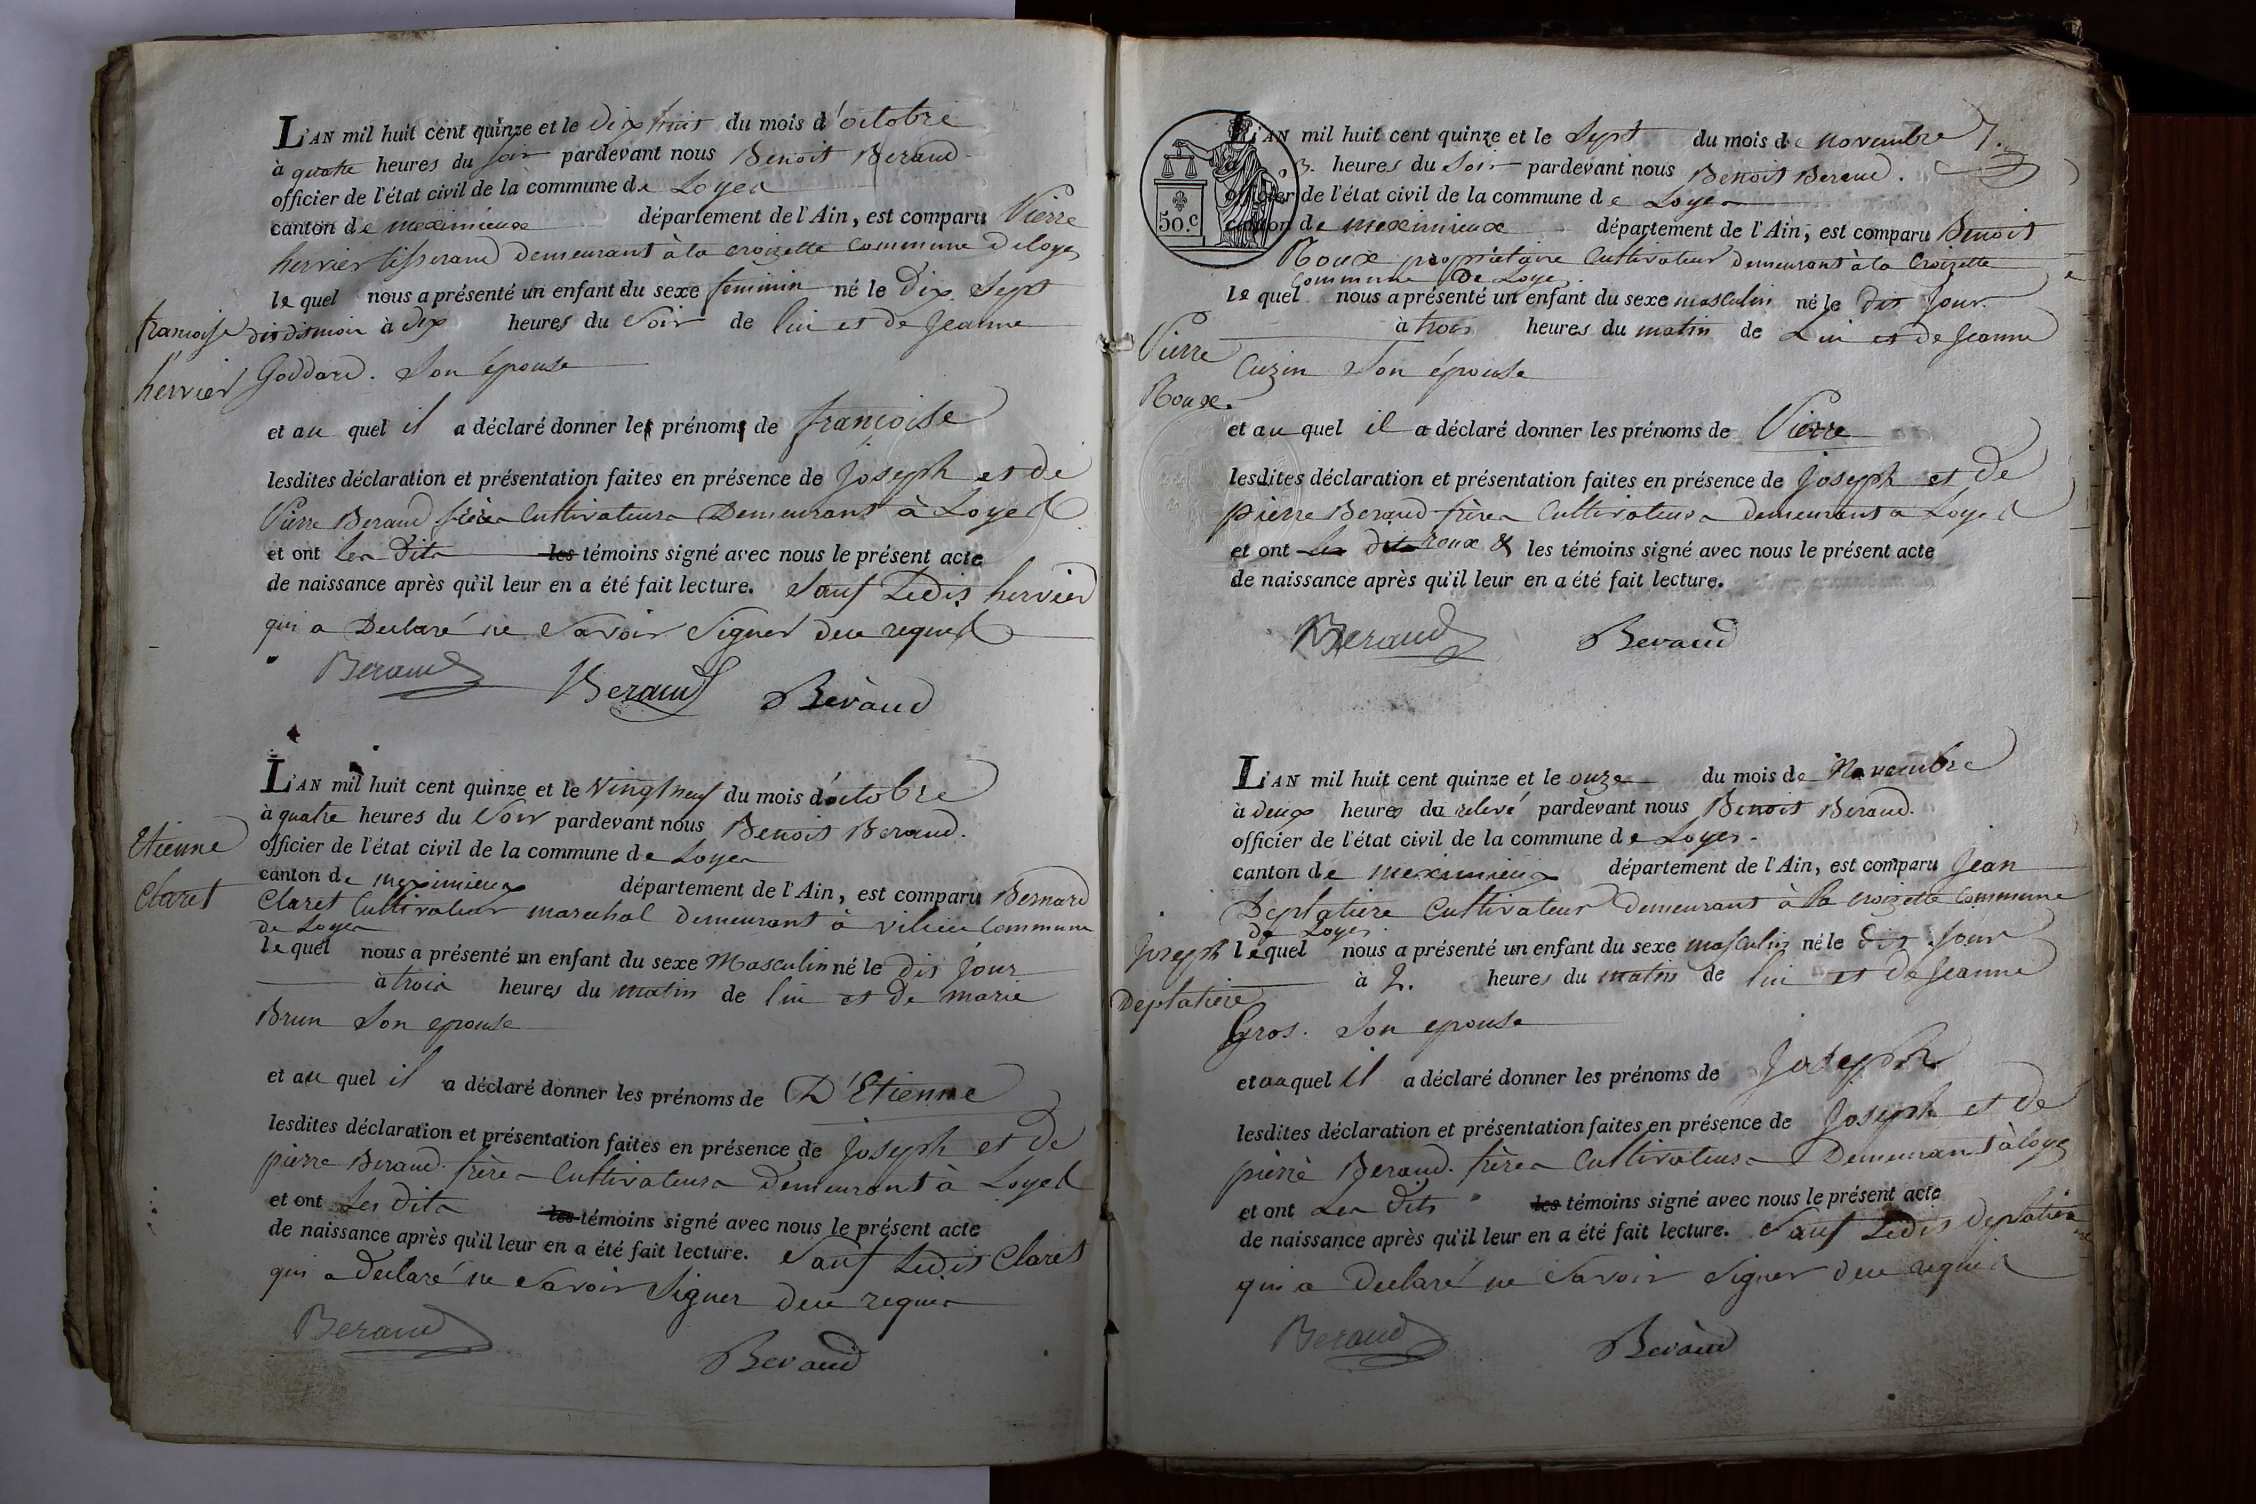 L'AN mil huit cent quinze et le dix huit du mois d'octobre
à quatre heures du soir pardevant nous Benoit Beraud
officier de l'état civil de la commune de Loyes
canton de meximieux département de l'Ain, est comparu Pierre
hervier tisserand demeurant à la croizette commune de loyes
le quel nous a présenté un enfant du sexe féminin né le dix sept
françoise
dudit mois à dix heures du soir de lui et de Jeanne
hervier
Goddard. Son épouse
et au quel il a déclaré donner les prénoms de françoise
lesdites déclaration et présentation faites en présence de Joseph et de
Pierre Beraud frères Cultivateurs Demeurant à Loyes
et ont les dits les témoins signé avec nous le présent acte
de naissance après qu'il leur en a été fait lecture. Sauf Ledit hervier
qui a Declaré ne Savoir Signer de ce requis
Beraud Beraud Béraud
L'AN mil huit cent quinze et le vingt neuf du mois d'octobre
à quatre heures du Soir pardevant nous Benoit Beraud.
Etienne
officier de l'état civil de la commune de Loyes
canton de meximieux département de l'Ain, est comparu Bernard
Claret
Claret Cultivateur marechal demeurant à vilieu Commune
de Loyes
le quel nous a présenté un enfant du sexe Masculin né le dit jour
à trois heures du matin de lui et de marie
Brun Son epouse
et au quel il a déclaré donner les prénoms de D'Etienne
lesdites déclaration et présentation faites en présence de Joseph et de
pierre Beraud. frères Cultivateurs demeurant à Loyes
et ont Les dits les témoins signé avec nous le présent acte
de naissance après qu'il leur en a été fait lecture. Sauf Ledit Claret
qui a declaré ne Savoir Signer de ce requis
Beraud Beraud
L'AN mil huit cent quinze et le Sept du mois de novembre 7.
3. heures du Soir pardevant nous Benoit Beraud.
officier de l'état civil de la commune de Loyes
50.c
canton de meximieux département de l'Ain, est comparu Benoit
Roux propriétaire Cultivateur demeurant à la Croizette
Commune De Loyes.
le quel nous a présenté un enfant du sexe masculin né le dit Jour
à trois heures du matin de Lui et de Jeanne
Pierre
Cuzin Son épouse
Roux.
et au quel il a déclaré donner les prénoms de Pierre
lesdites déclaration et présentation faites en présence de Joseph et de
pierre Beraud frères Cultivateurs demeurant à Loyes
et ont les dits roux & les témoins signé avec nous le présent acte
de naissance après qu'il leur en a été fait lecture.
Beraud Beraud
L'AN mil huit cent quinze et le onze du mois de Novembre
à deux heures du relevé pardevant nous Benoit Beraud.
officier de l'état civil de la commune de Loyes.
canton de meximieux département de l'Ain, est comparu Jean
Deplatiere Cultivateur demeurant à la croizette Commune
de Loyes.
Joseph
le quel nous a présenté un enfant du sexe masculin né le dit Jour
à 2. heures du matin de lui et de Jeanne
Deplatiere
Gros. Son epouse
et au quel il a déclaré donner les prénoms de Joseph
lesdites déclaration et présentation faites en présence de Joseph et de
pierre Beraud. frères Cultivateurs Demeurant à loyes
et ont Les dits les témoins signé avec nous le présent acte
de naissance après qu'il leur en a été fait lecture. Sauf Ledit deplatiere
qui a Declaré ne Savoir Signer de ce requis
Beraud Beraud